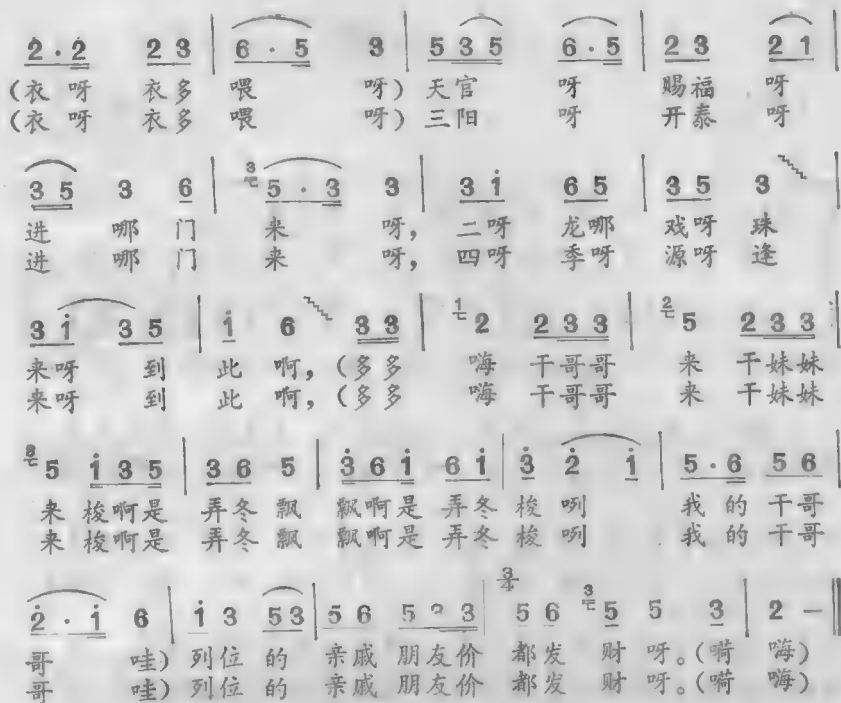 2·2 23 | 6·5 3 | 535 6·5 | 23 21 |
(衣呀 衣多 喂 呀) 天官 呀 赐福 呀
(衣呀 衣多 喂 呀) 三阳 呀 开泰 呀
35 3 6 | 3 5·3 3 | 3i 65 | 35 3 |
进 哪 门 来 呀, 二呀 龙哪 戏呀 珠
进 哪 门 来 呀, 四呀 季呀 源呀 逢
3i 35 | i 6 33 | 1 2 233 | 2 5 233 |
来呀 到 此 啊, (多多 嗨 干哥哥 来 干妹妹
来呀 到 此 啊, (多多 嗨 干哥哥 来 干妹妹
3 5 i35 | 36 5 | 36i 6i | 3 2 i | 5·6 56 |
来 梭啊是 弄冬 飘 飘啊是 弄冬 梭 咧 我的 干哥
来 梭啊是 弄冬 飘 飘啊是 弄冬 梭 咧 我的 干哥
2·i 6 | i3 53 | 56 523 | 3/4 56 3 5 5 3 | 2 – ‖
哥 哇) 列位 的 亲戚 朋友价 都发 财 呀。(嗬 嗨)
哥 哇) 列位 的 亲戚 朋友价 都发 财 呀。(嗬 嗨)